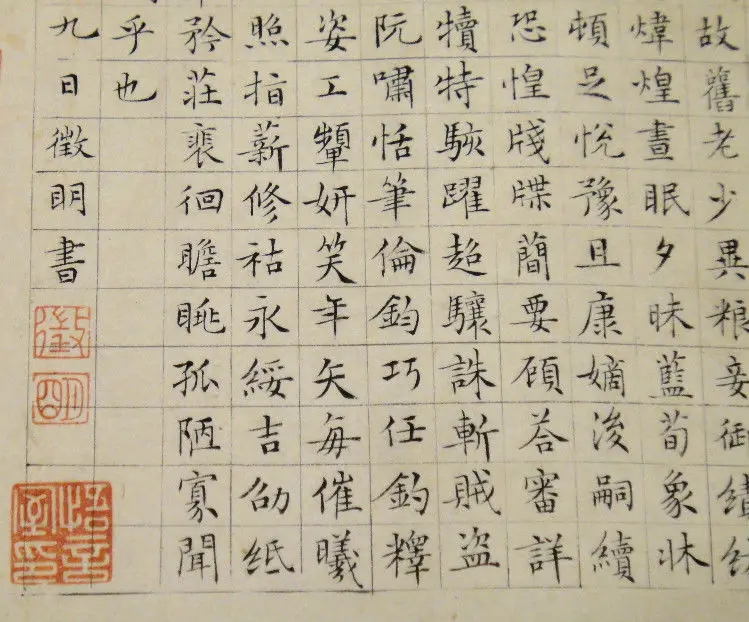 故舊老少異粮妾御績紡
煒煌晝眠夕昧藍荀象牀
頓足悅豫且康嫡後嗣續
恐惶牋牒簡要顧答審詳
犢特駭躍超驤誅斬賊盜
阮嘯恬筆倫鈞巧任釣釋
姿工顰妍笑年矢每催曦
照指薪修祜永綏吉劭紙
矜莊裴徊瞻眺孤陋寡聞
乎也
九日徵明書
徵
明
悟言室印